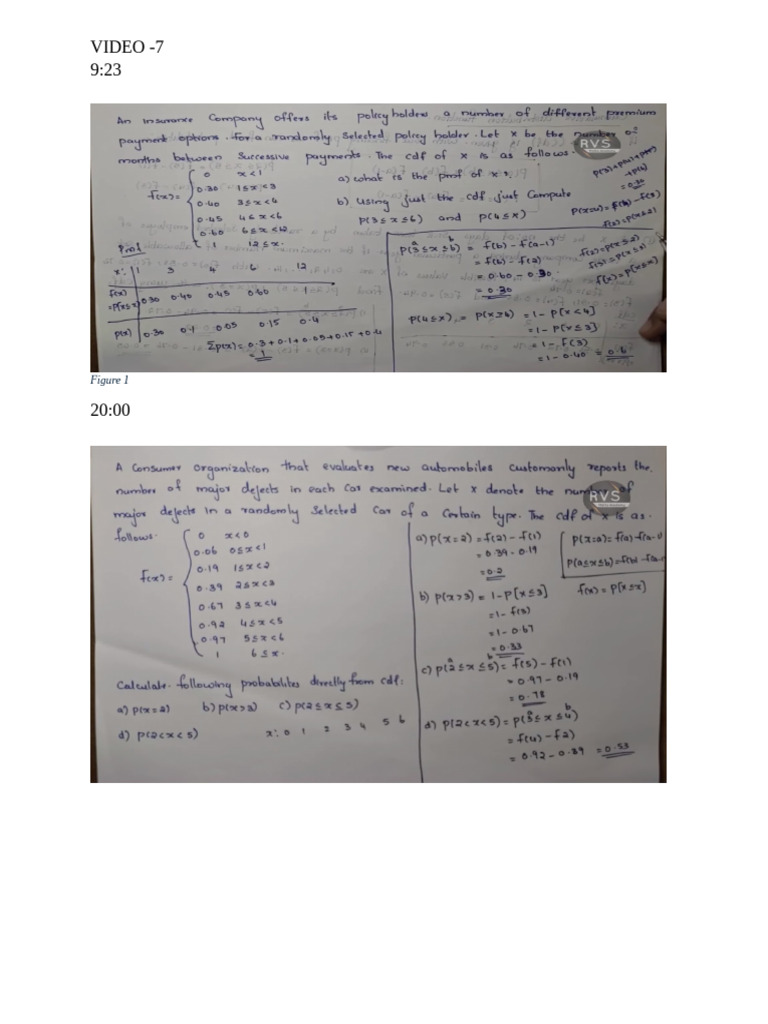 VIDEO -7
9:23
An insurance Company offers its policyholders a number of different premium
payment options. For a randomly selected policy holder. Let x be the number of
months between Successive payments. The cdf of x is as follows.
RVS
f(x) =
0 x<1
0.30 1≤x<3
0.40 3≤x<4
0.45 4≤x<6
0.60 6≤x<12
1 12≤x.
a) what is the pmf of x?
b) using just the cdf just Compute
P(3≤x≤6) and P(4≤x)
x: 1 3 4 6 12
f(x)
=P(x≤x) 0.30 0.40 0.45 0.60 1
p(x) 0.30 0.1 0.05 0.15 0.4
Σp(x) = 0.3+0.1+0.05+0.15+0.4
= 1
a b
P(3≤x≤6) = f(b) - f(a-1)
= f(6) - f(2)
= 0.60 - 0.30
= 0.30
P(4≤x) = P(x≥4) = 1-P[x<4]
= 1-P[x≤3]
= 1- f(3)
= 1-0.40 = 0.6
= 0.30
f(x)=P(x≤x)
Figure 1
20:00
A Consumer organization that evaluates new automobiles customonly reports the.
number of major defects in each Car examined. Let x denote the number of
RVS
major defects in a randomly Selected Car of a Certain type. The cdf of x is as.
follows.
f(x) =
0 x<0
0.06 0≤x<1
0.19 1≤x<2
0.39 2≤x<3
0.67 3≤x<4
0.92 4≤x<5
0.97 5≤x<6
1 6≤x.
Calculate following probabilites directly from cdf:
a) P(x=2) b) P(x>3) c) P(2≤x≤5)
d) P(2<x<5) x: 0 1 2 3 4 5 6
a) P(x=2) = f(2) - f(1)
= 0.39 - 0.19
= 0.2
P(x=a) = f(a) - f(a-1)
P(a≤x≤b) = f(b) - f(a-
f(x) = P[x≤x]
b) P(x>3) = 1-P[x≤3]
= 1- f(3)
= 1- 0.67
= 0.33
a b
c) P(2≤x≤5) = f(5) - f(1)
= 0.97 - 0.19
= 0.78
a b
d) P(2<x<5) = P(3≤x≤4)
= f(4) - f2)
= 0.92 - 0.39 = 0.53